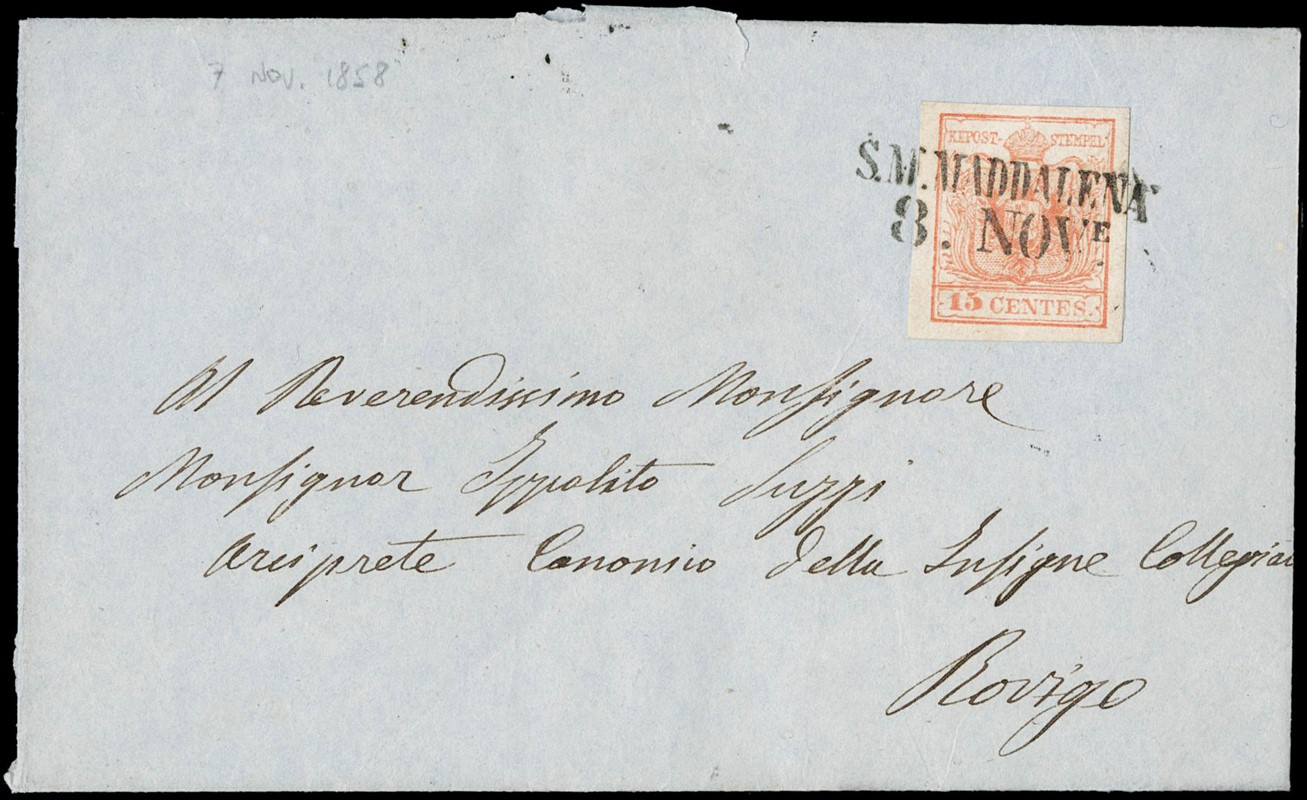 7 NOV. 1858
KKPOST-STEMPEL
S.M. MADDALENA
8. NOVE
15 CENTES.
Al Reverendissimo Monsignore
Monsignor Ippolito
Arciprete Canonico della Insigne Collegia
Rovigo